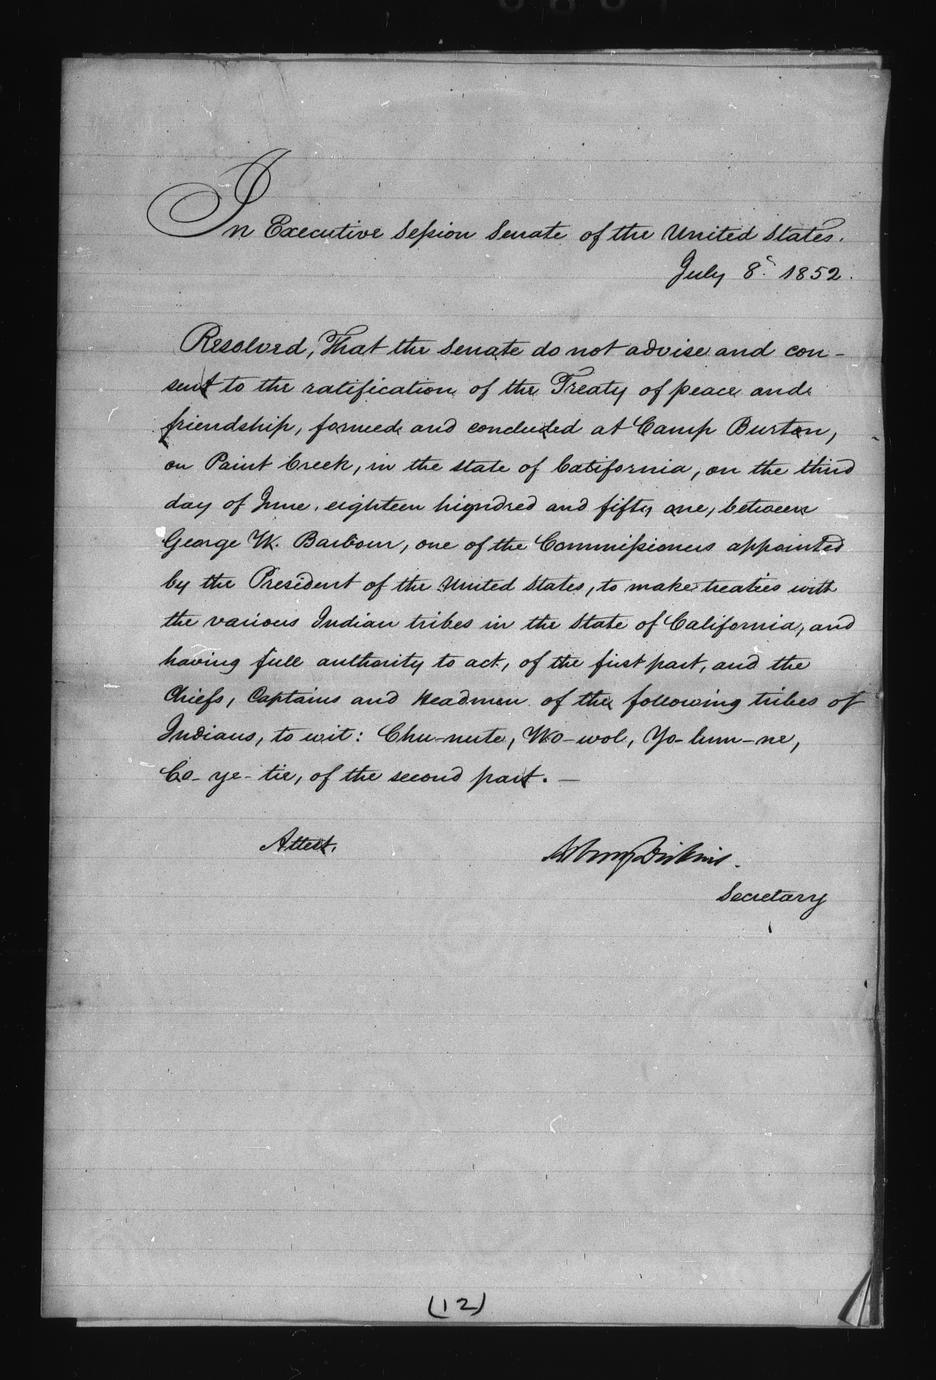 In Executive Session Senate of the United States.
July 8. 1852.
Resolved, That the Senate do not advise and con-
sent to the ratification of the Treaty of peace and
friendship, formed and concluded at Camp Burton,
on Paint Creek, in the state of California, on the third
day of June, eighteen hundred and fifty one, between
George W. Barbour, one of the Commissioners appointed
by the President of the United States, to make treaties with
the various Indian tribes in the State of California, and
having full authority to act, of the first part, and the
Chiefs, Captains and Headmen of the following tribes of
Indians, to wit: Chu-nute, Wo-wol, Yo-lum-ne,
Co-ye-tie, of the second part. —
Attest,
Asbury Dickins.
Secretary
(12)